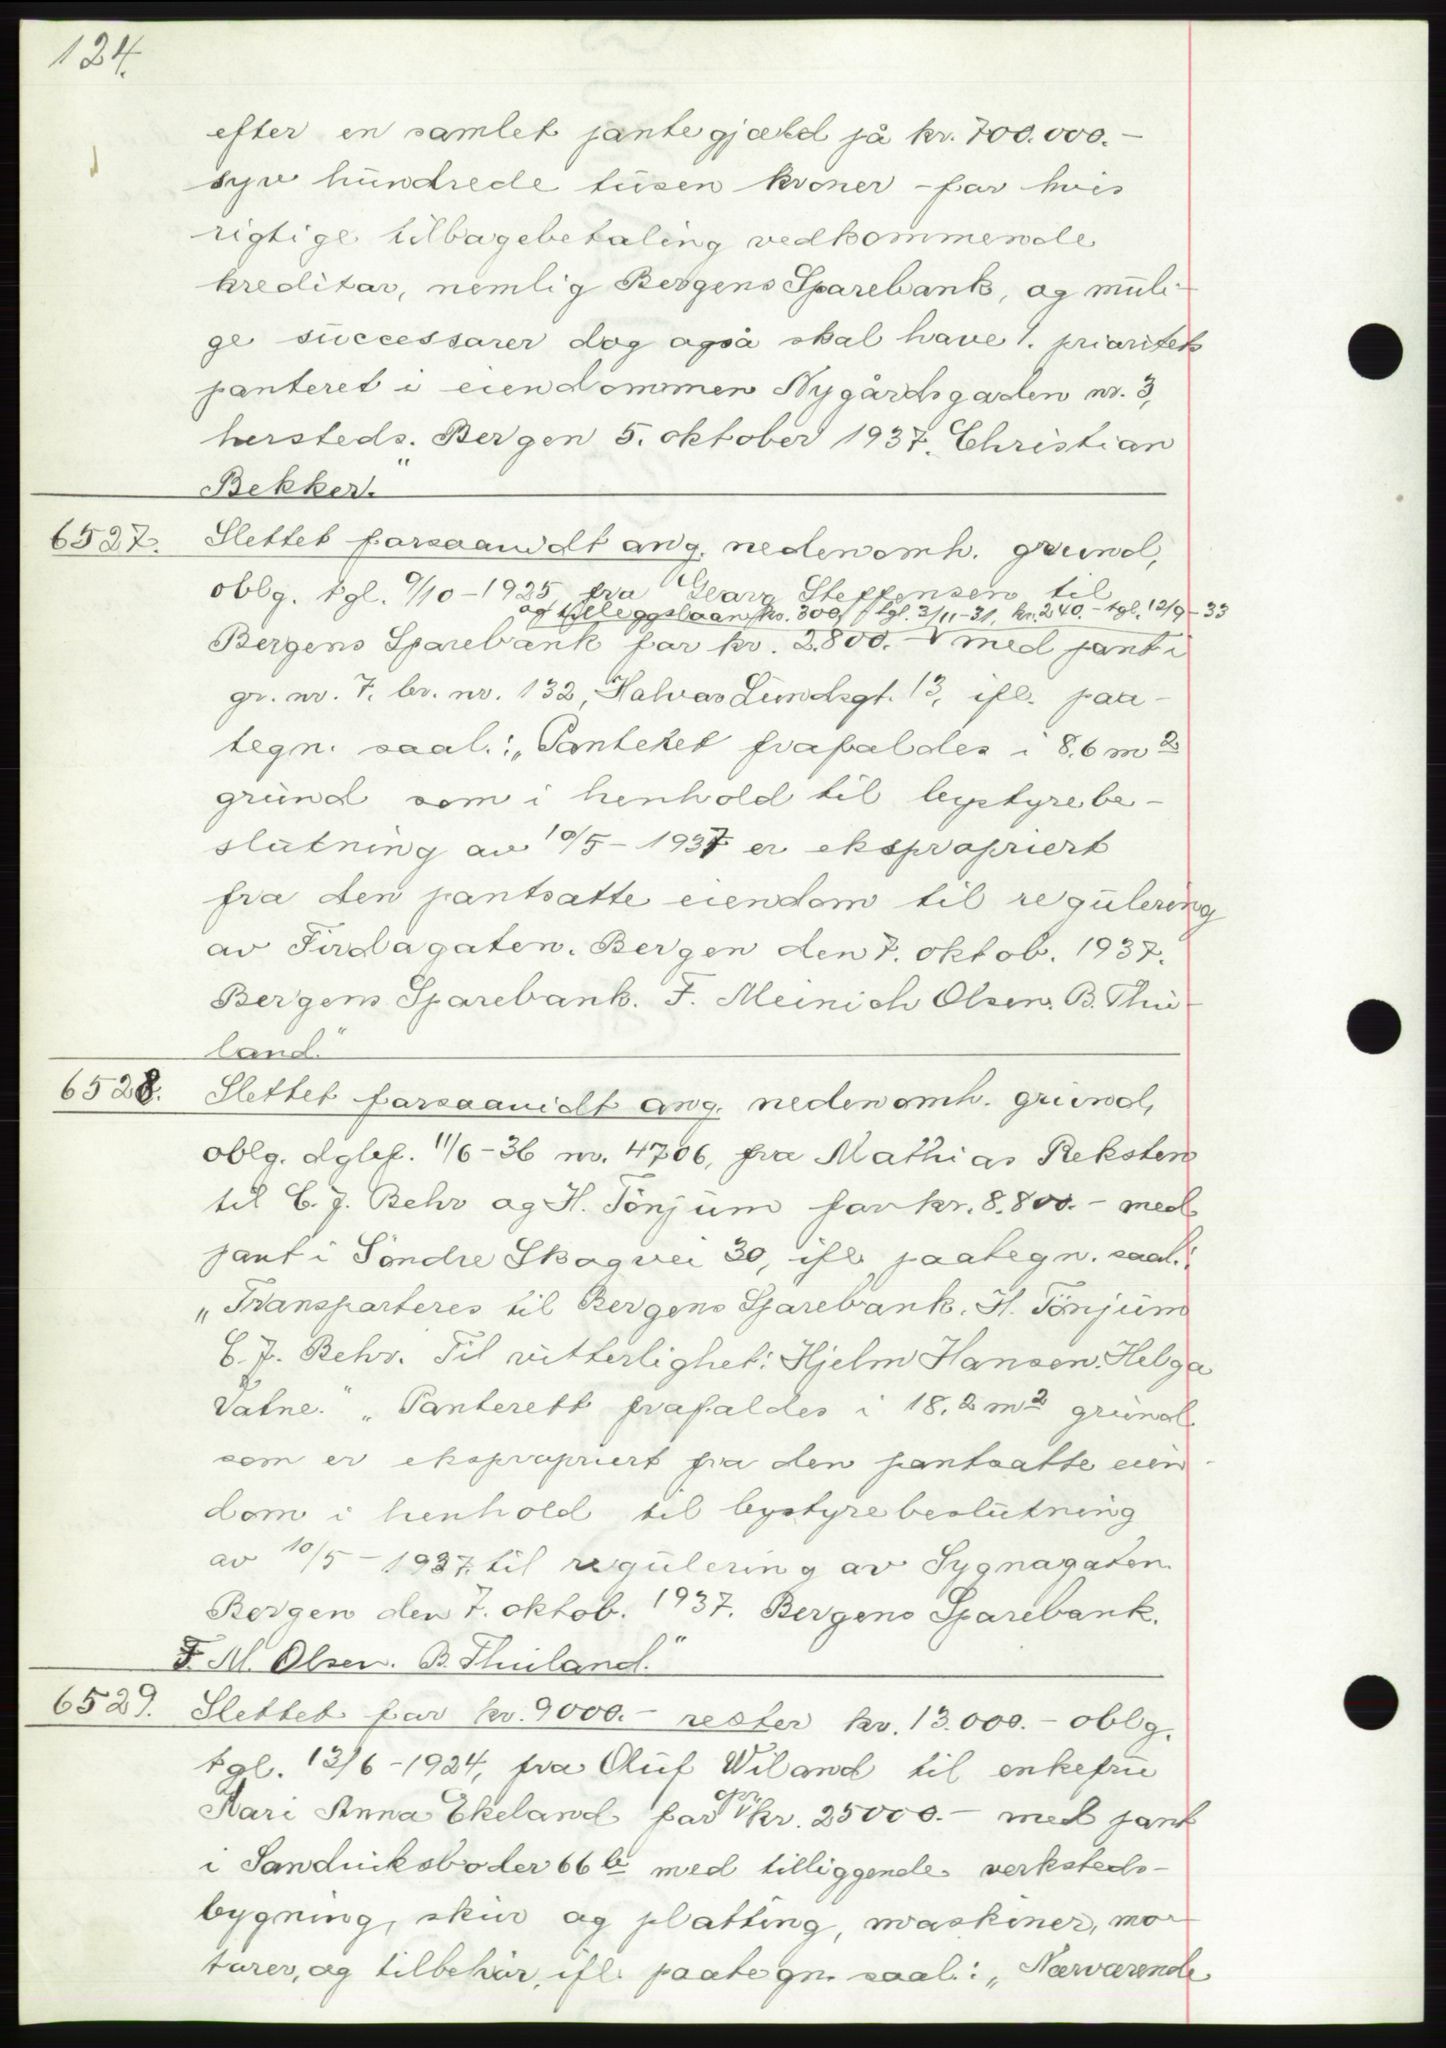 124.
efter en samlet pantegjæld på kr. 700.000.-
syv hundrede tusen kroner - for hvis
rigtige tilbagebetaling vedkommende
kreditor, nemlig Bergens Sparebank, og muli-
ge successorer dog også skal have 1. prioritets
panteret i eiendommen Nygårdsgaden nr. 3,
hersteds. Bergen 5. oktober 1937. Christian
Bekker."
6527. Slettet forsaavidt ang. nedenomh. grund,
oblg. tgl. 9/10-1925, fra Georg Steffensen til
og tilleggslaan kr. 300, tgl. 3/11-31, kr. 240.- tgl. 12/9-33
Bergens Sparebank for kr. 2.800.- med pant i
gr. nr. 7. br. nr. 132, Halvor Lundsgt. 13, ifl. paa-
tegn. saal.: „Panteret frafaldes i 8.6 m2
grund som i henhold til bystyrebe-
slutning av 10/5-1937 er ekspropriert
fra den pantsatte eiendom til regulering
av Firdagaten. Bergen den 7. oktob. 1937.
Bergens Sparebank. F. Meinich Olsen. B. Thu-
land."
6528. Slettet forsaavidt ang. nedenomh. grund,
oblg. dglsf. 11/6-36 nr. 4706, fra Mathias Reksten
til C. J. Behr og H. Tönjum for kr. 8.800.- med
pant i Söndre Skogvei 30, ifl. paategn. saal.:
„Transporteres til Bergens Sparebank. H. Tönjum
C. J. Behr. Til vitterlighet: Hjelm Hansen. Helga
Vatne." „Panterett frafaldes i 18.2 m2 grund
som er ekspropriert fra den pantsatte eien-
dom i henhold til bystyrebeslutning
av 10/5-1937. til regulering av Sygnagaten.
Bergen den 7. oktob. 1937. Bergens Sparebank.
F. M. Olsen. B. Thuland."
6529. Slettet for kr. 9000.- rester kr. 13.000.- oblg.
tgl. 13/6-1924, fra Oluf Wiland til enkefru
Kari Anna Ekeland for opr. kr. 25000.- med pant
i Sandviksboder 66 b med tilliggende verksteds-
bygning, skur og platting, maskiner, mo-
torer, og tilbehör, ifl. paategn. saal.: „Nærværende